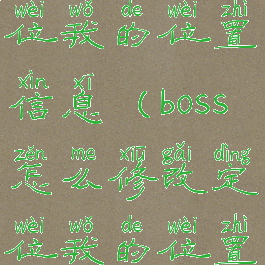 wèi wǒ de wèi zhì
位我的位置
xìn xī
信息（boss
zěn me xiū gǎi dìng
怎么修改定
wèi wǒ de wèi zhì
位我的位置